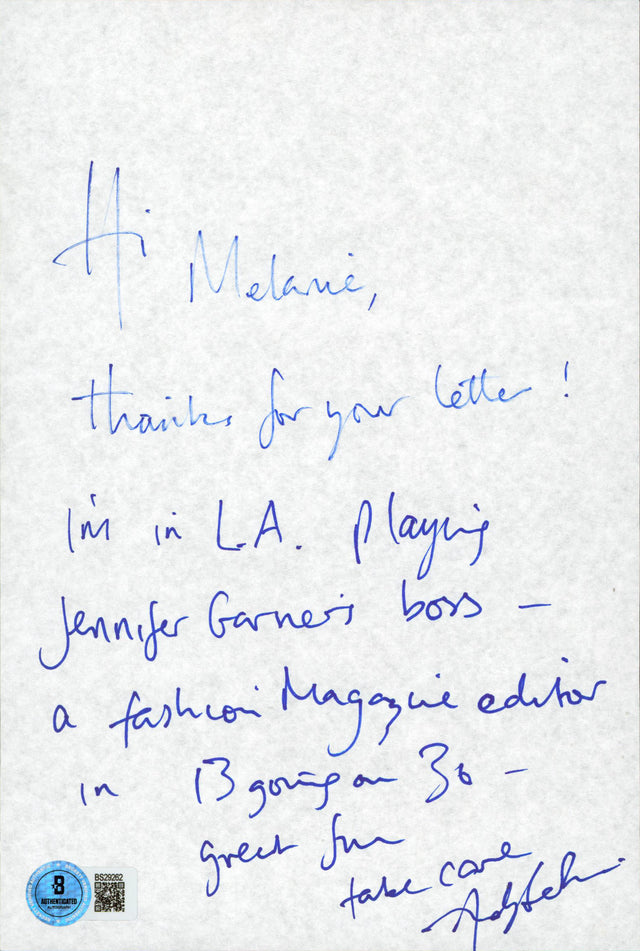 Hi
Melanie,
thanks for your letter!
I'm in L.A. playing
Jennifer Garner's boss –
a fashion Magazine editor
in 13 going on 30 –
great fun
take care
BS29262
B
AUTHENTICATED